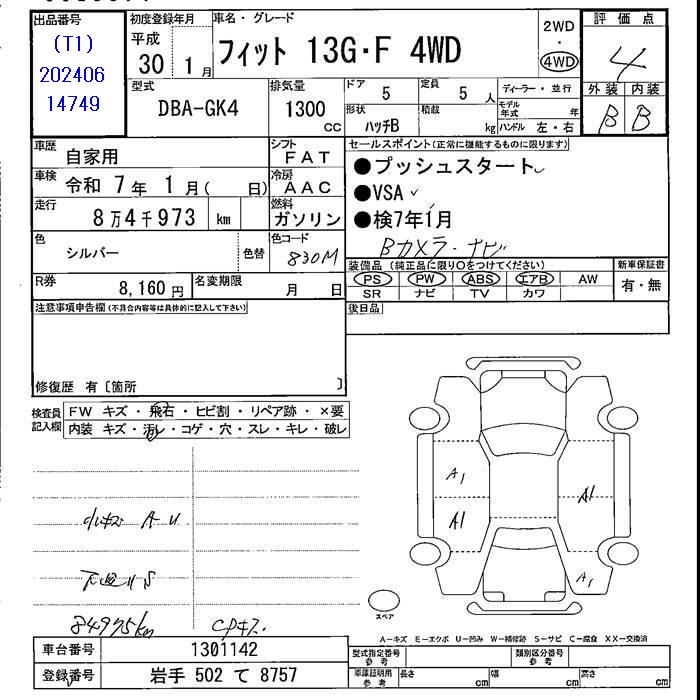 出品番号
(T1)
202406
14749
初度登録年月
平成
30 1月
車名・グレード
フィット 13G・F 4WD
2WD
4WD
評価点
4
外装 内装
B B
型式
DBA-GK4
排気量
1300
CC
ドア
5
定員
5 人
形状
ハッチB
積載
kg
ディーラー・並行
モデル年式 年
ハンドル 左・右
車歴
自家用
シフト
FAT
車検
令和 7年 1月( 日)
冷房
AAC
走行
8万4千973 km
燃料
ガソリン
色
シルバー
色替
色コード
830M
R券
8,160円
名変期限
月 日
セールスポイント(正常に機能するものに限ります)
●プッシュスタート
●VSA
●検7年1月
Bカメラ・ナビ
装備品 (純正品に限り○をつけてください)
PS PW ABS エアB AW
SR ナビ TV カワ
新車保証書
有・無
後日品
注意事項申告欄(不具合内容等は具体的に記入して下さい)
修復歴 有〔箇所 〕
検査員
記入欄
FW キズ・飛石・ヒビ割・リペア跡・×要
内装 キズ・汚レ・コゲ・穴・スレ・キレ・破レ
小キズ A U
下回りS
84975km
CPキズ.
A1
A1
A1
A1
スペア
A-キズ E-エクボ U-凹み W-補修跡 S-サビ C-腐食 XX-交換済
車台番号
1301142
登録番号
岩手 502 て 8757
型式指定番号
参考
類別区分番号
参考
車庫証明用
参考
長さ cm
幅 cm
高さ cm